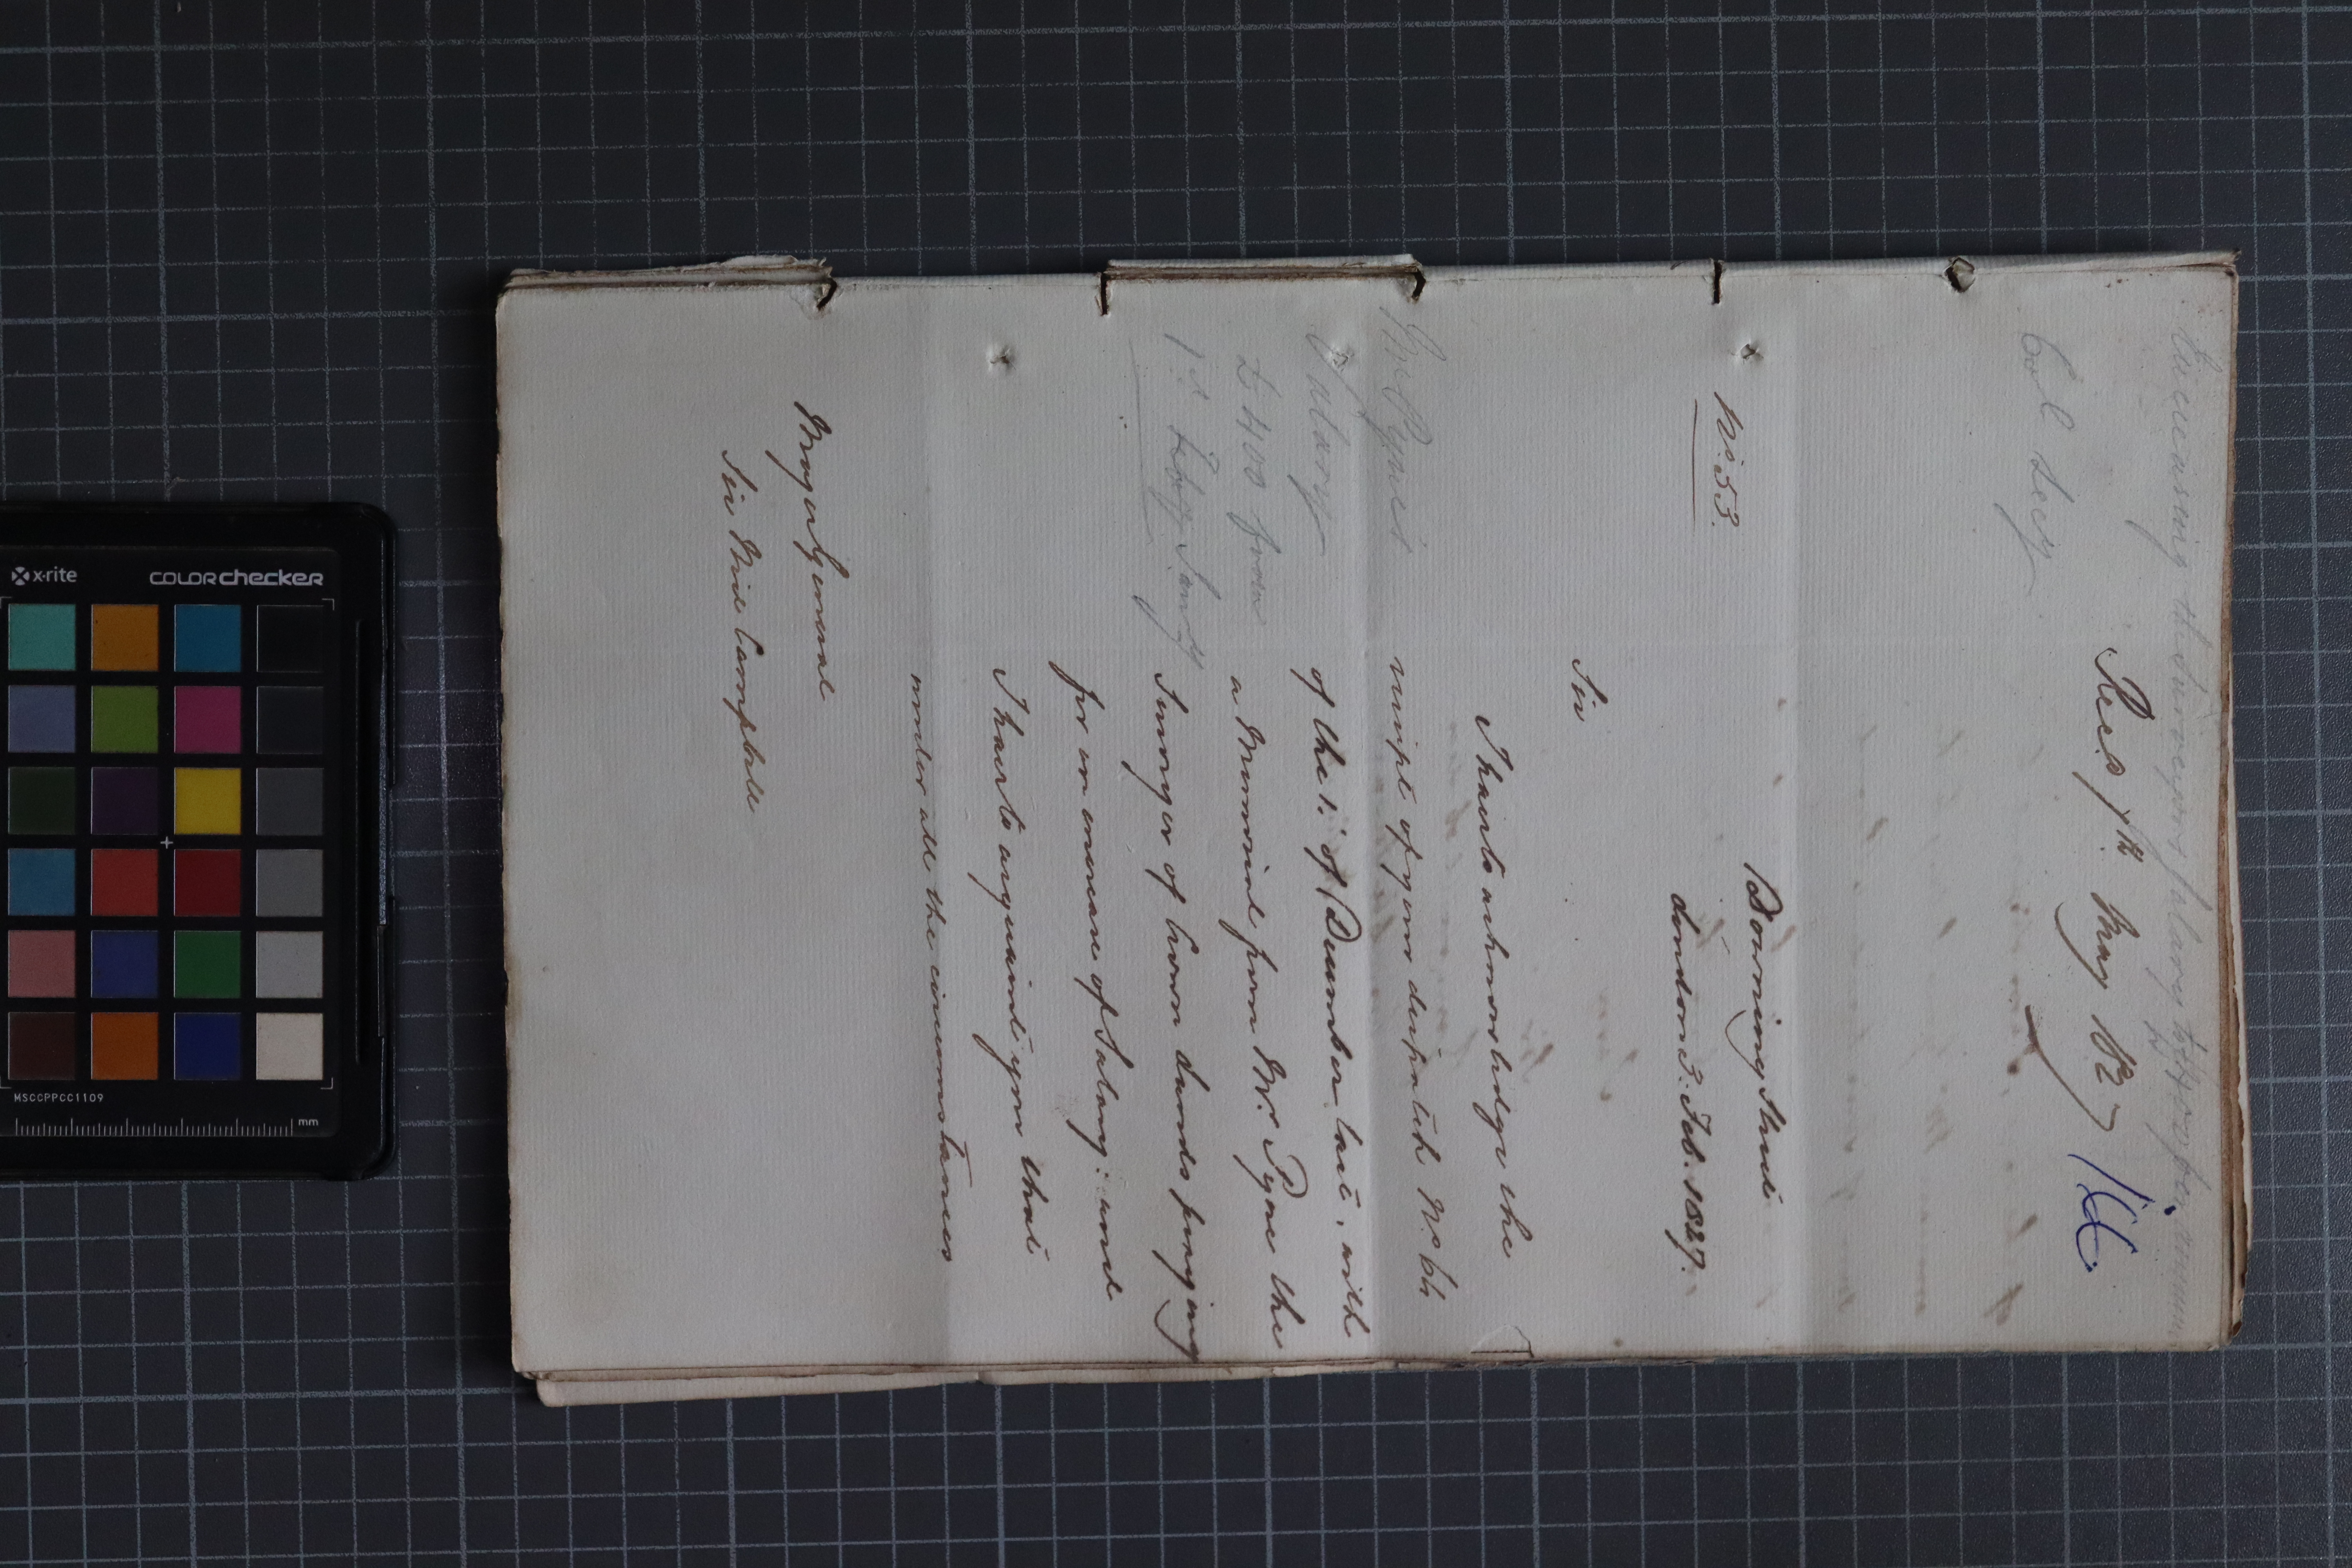 Increasing the Surveyors Salary to £400 per annum
Col. Secy
Recd 7th May 1827
No. 53.
Downing Street
London 3. Feb. 1827.
Sir
I have to acknowledge the
receipt of your despatch No. 64
of the 1st of December last, with
a Memorial from Mr. Pyne the
Surveyor of Crown Lands praying
for an increase of Salary: and
I have to acquaint you that
under all the circumstances
Mr. Pyne's
Salary
£400 from
1st Jany
Major General
Sir Neil Campbell
x-rite
COLORchecker
MSCCPPCC1109
mm